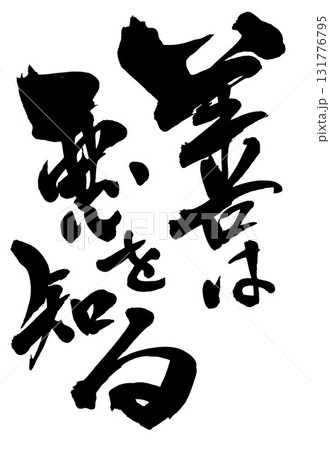 善は
悪を
知る
PIXTA
pixta.jp - 131776795